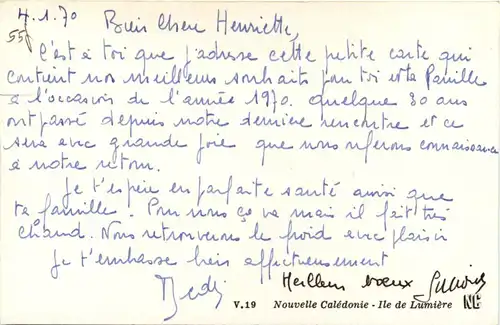 4.1.70 Bien Chère Henriette,
55
C'est à toi que j'adresse cette petite carte qui
contient nos meilleurs souhaits pour toi et ta famille
à l'occasion de l'année 1970. Quelque 30 ans
ont passé depuis notre dernière rencontre et ce
sera avec grande joie que nous referons connaissance
à notre retour.
Je t'espère en parfaite santé ainsi que
ta famille. Pour nous ça va mais il fait très
chaud. Nous retrouverons le froid avec plaisir
Je t'embrasse bien affectueusement
Meilleurs voeux
V.19 Nouvelle Calédonie - Ile de Lumière NC